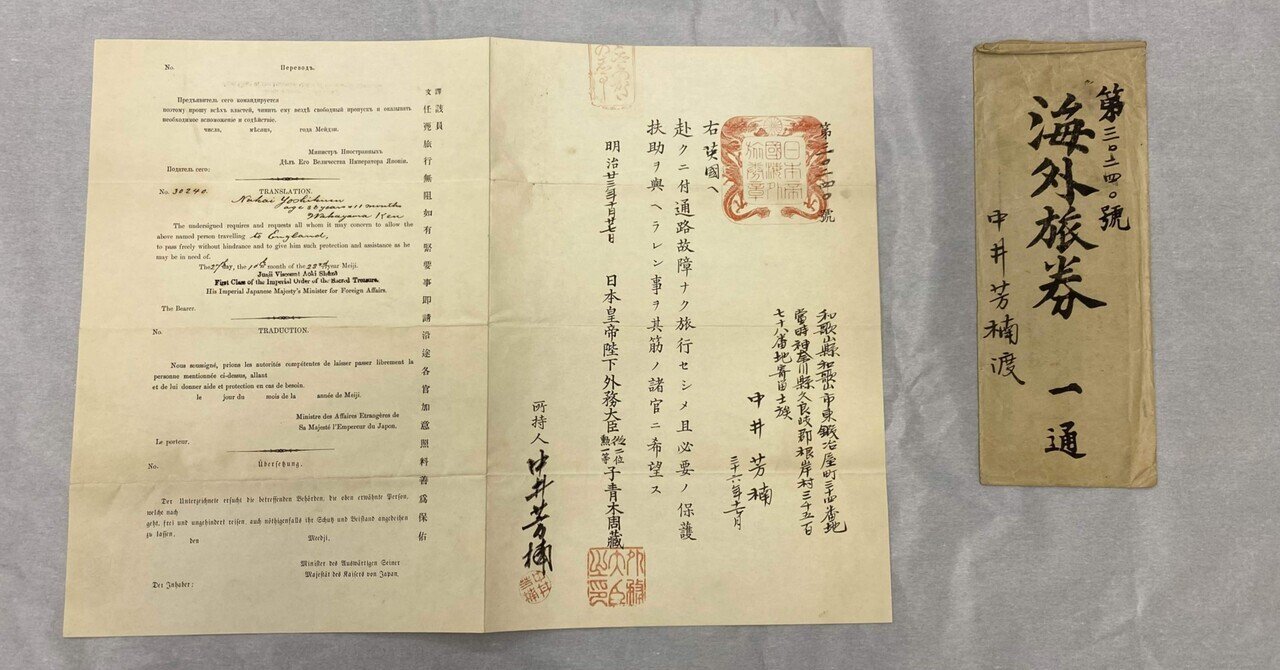 No. Переводъ.
Предъявитель сего командируется
поэтому прошу всѣхъ властей, чинить ему вездѣ свободный пропускъ и оказывать
необходимое вспоможение и содѣйствіе.
числа, мѣсяцъ, года Мейдзи.
Министръ Иностранныхъ
Дѣлъ Его Величества Императора Японіи.
Податель сего:
No. 30240. TRANSLATION.
Nakai Yoshikusu
age 36 years 11 months
Wakayama Ken
The undersigned requires and requests all whom it may concern to allow the
above named person travelling to England,
to pass freely without hindrance and to give him such protection and assistance as he
may be in need of.
The 27th day, the 10th month of the 23rd year Meiji.
Junii Viscount Aoki Shūzō
First Class of the Imperial Order of the Sacred Treasure.
His Imperial Japanese Majesty's Minister for Foreign Affairs.
The Bearer.
No. TRADUCTION.
Nous soussigné, prions les autorités compétentes de laisser passer librement la
personne mentionnée ci-dessus, allant
et de lui donner aide et protection en cas de besoin.
le jour du mois de la année de Meiji.
Ministre des Affaires Etrangères de
Sa Majesté l'Empereur du Japon.
Le porteur.
No. Übersetzung.
Der Unterzeichnete ersucht die betreffenden Behörden, die oben erwähnte Person,
welche nach
geht, frei und ungehindert reisen, auch nöthigenfalls ihr Schutz und Beistand angedeihen
zu lassen,
den Meedji,
Minister des Auswärtigen Seiner
Majestät des Kaisers von Japan.
Der Inhaber:
譯文
該員任憑旅行無阻如有緊要事即請沿途各官加意照料善為保佑
第三〇二四〇號
日本帝國海外旅券章
和歌山縣和歌山市東鍛冶屋町三四番地
當時神奈川縣久良岐郡根岸村三千五百
七十八番地寄留士族
中井芳楠
三十六年十一月
右英國ヘ
赴クニ付通路故障ナク旅行セシメ且必要ノ保護
扶助ヲ與ヘラレン事ヲ其筋ノ諸官ニ希望ス
明治廿三年十月廿七日
日本皇帝陛下外務大臣從二位勲一等子青木周藏
外務大臣之印
所持人 中井芳楠
中井芳楠
第三〇二四〇號
海外旅券 一通
中井芳楠渡